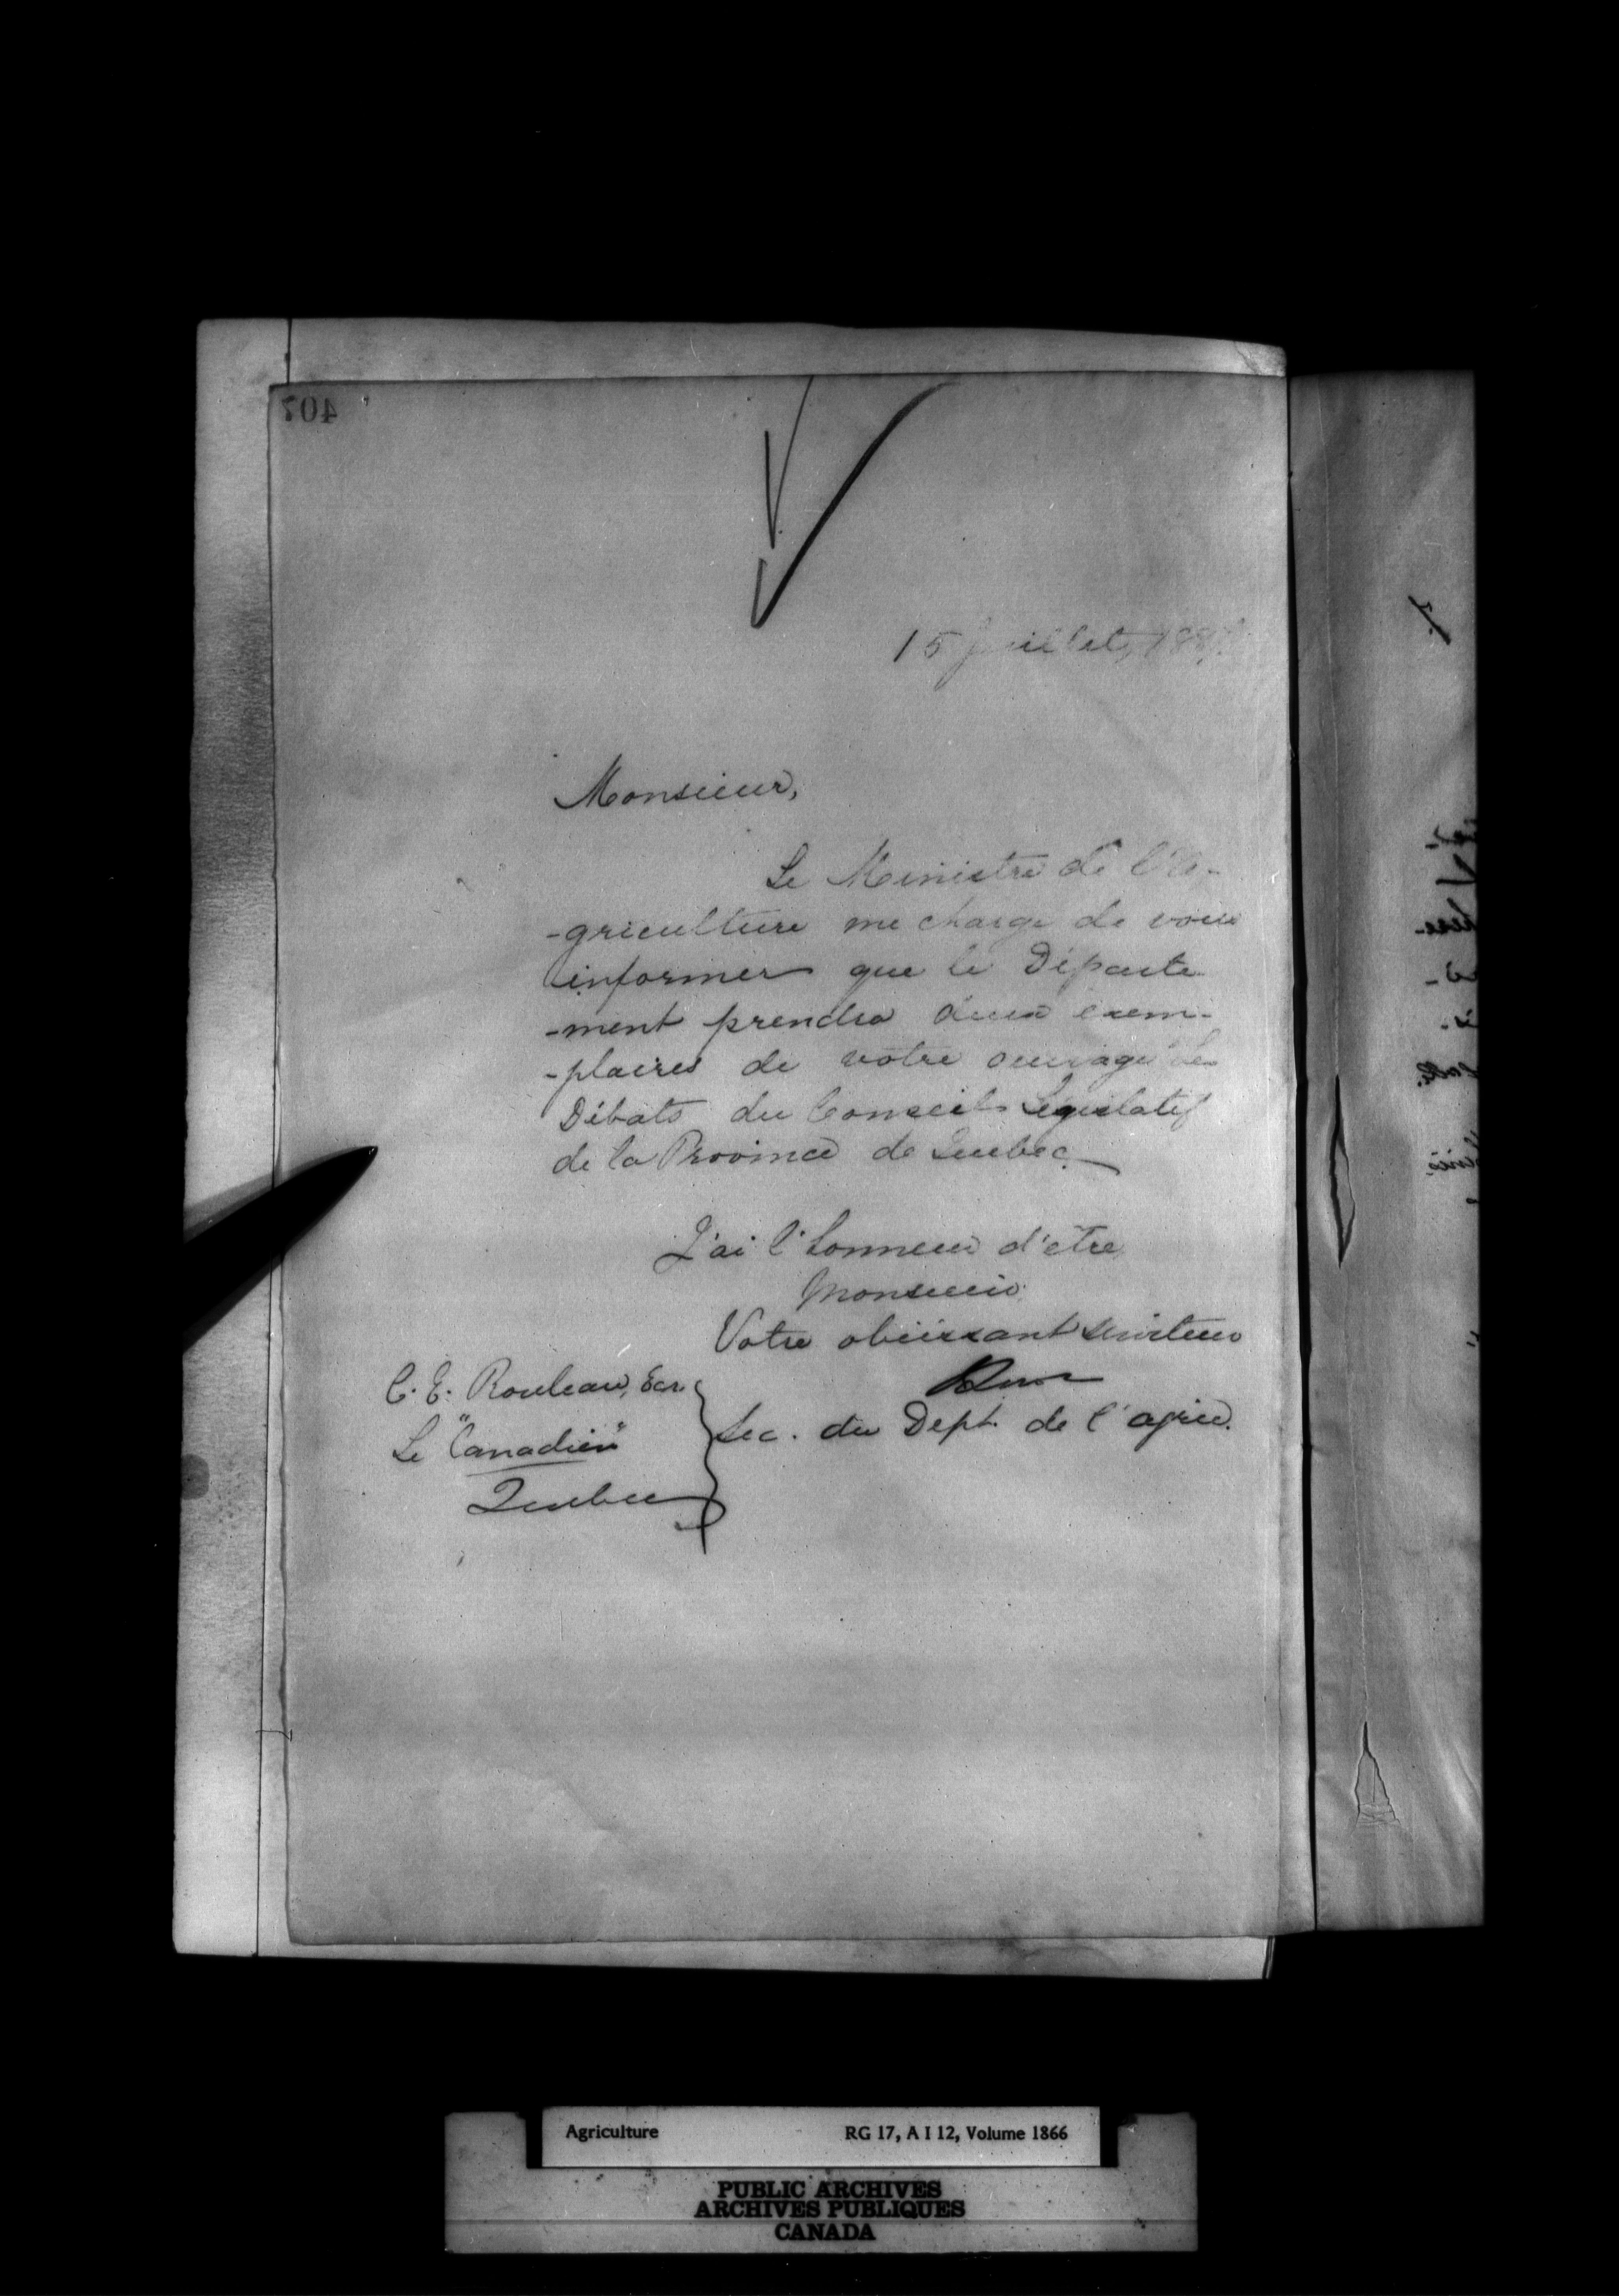 407
15 Juillet, 188
Monsieur,
Le Ministre de l'A-
-griculture me charge de vous
informer que le Départe
-ment prendra deux exem-
-plaires de votre ouvrage "Les
Débats du Conseil Législatif
de la Province de Quebec.
J'ai l'honneur d'être,
Monsieur,
Votre obéissant serviteur
Sec. du Dept. de l'agric.
C. E. Rouleau, Ecr.
Le "Canadien"
Quebec
Agriculture RG 17, A I 12, Volume 1866
PUBLIC ARCHIVES
ARCHIVES PUBLIQUES
CANADA